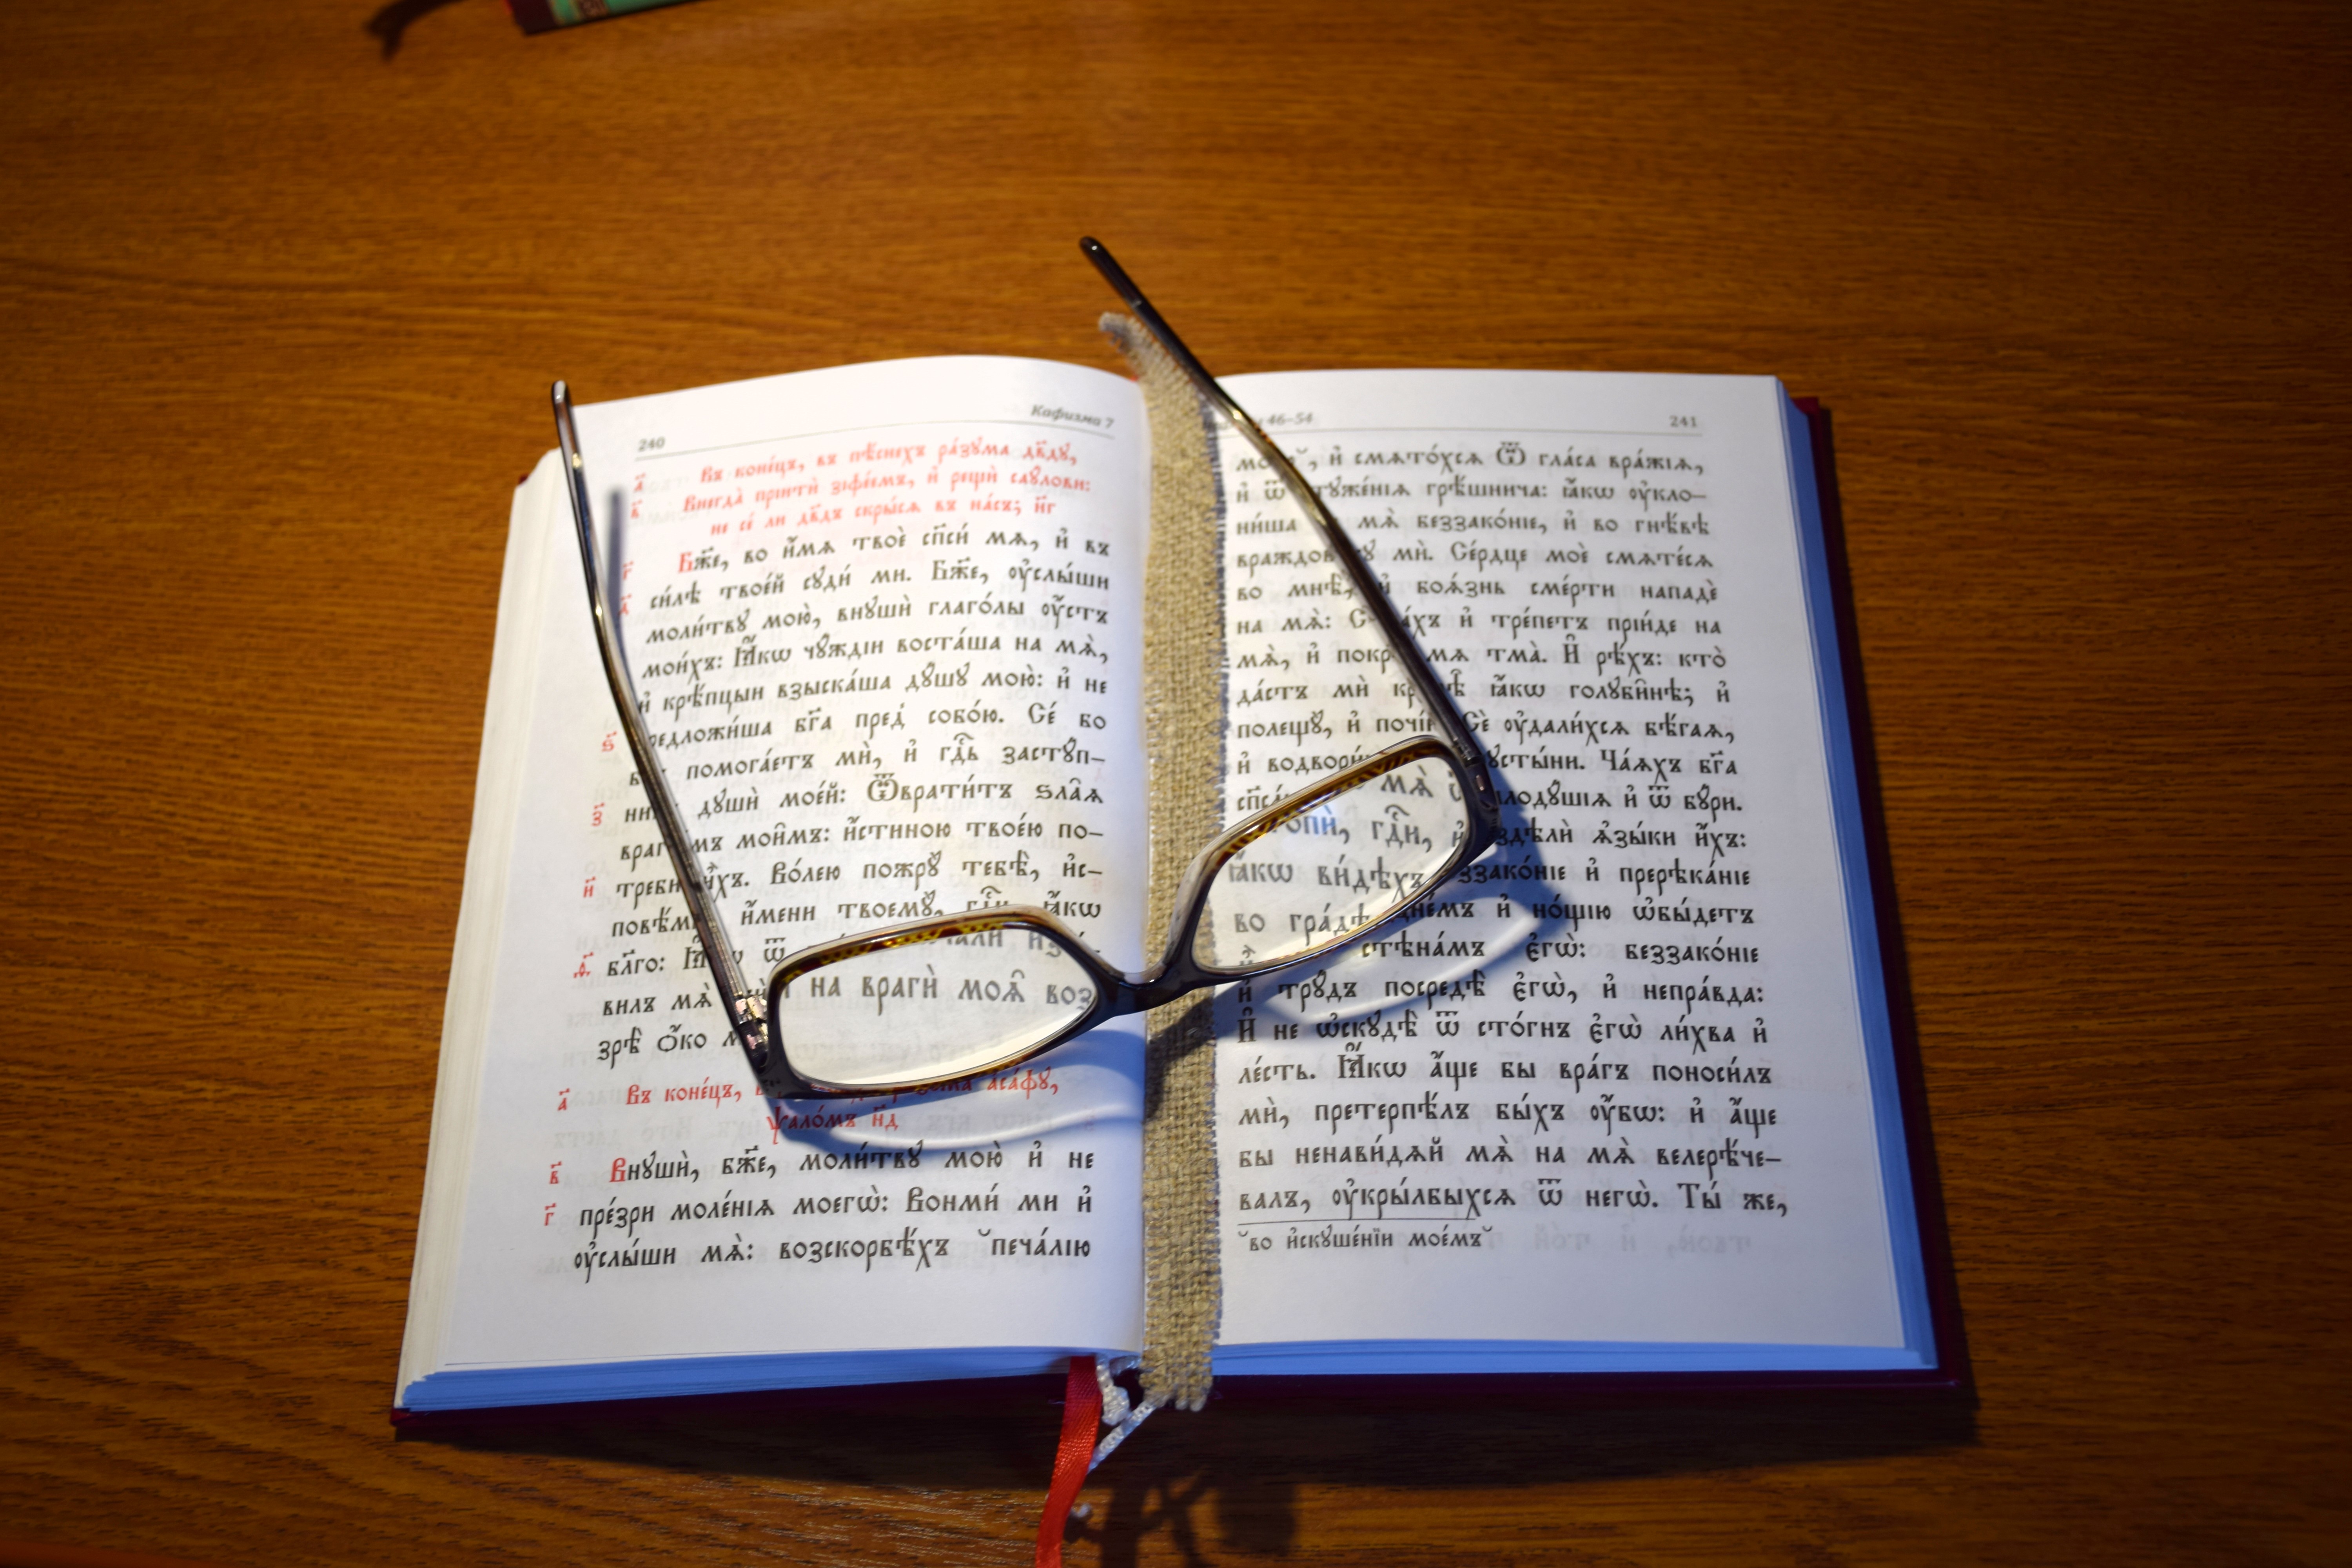 240
Кафизма 7
а҃ Въ коне́цъ, въ пѣ́снехъ ра́зума дв҃ду,
в҃ Внегда̀ прїитѝ зїфе́емъ, и҆ рещѝ сау́лови:
не се́ ли дв҃дъ скры́сѧ въ на́съ; н҃г
г҃ Бж҃е, во и҆́мѧ твоѐ сп҃си́ мѧ, и҆ въ
д҃ си́лѣ твое́й суди́ ми. Бж҃е, ᲂу҆слы́ши
моли́твꙋ мою̀, внꙋшѝ глаго́лы ᲂу҆́стъ
мои́хъ: Ꙗ҆́кѡ чꙋ́ждїи воста́ша на мѧ̀,
и҆ крѣ́пцыи взыска́ша дꙋ́шꙋ мою̀: и҆ не
ѕ҃ бг҃а пред̾ собо́ю. Се́ бо
помога́етъ мѝ, и҆ гдⷭ҇ь застꙋ́п-
з҃ дꙋшѝ мое́й: Ѿврати́тъ ѕла̑ѧ
мои̑мъ: и҆́стиною твое́ю по-
и҃ и҆̀хъ. Во́лею пожрꙋ̀ тебѣ̀, и҆с-
и҆́мени твоемꙋ̀, гдⷭ҇и, ꙗ҆́кѡ
ѳ҃ бл҃го: ѿ
вилъ мѧ̀ на врагѝ моѧ̑ воз
зрѣ̀ ѻ҆́ко
а҃ Въ коне́цъ, а҆са́фꙋ,
ѱало́мъ н҃д
в҃ Внꙋшѝ, бж҃е, моли́твꙋ мою̀ и҆ не
г҃ пре́зри моле́нїѧ моегѡ̀: Вонми́ ми и҆
ᲂу҆слы́ши мѧ̀: возскорбѣ́хъ ̆печа́лїю
46–54
241
и҆ смѧто́хсѧ Ѿ гла́са вра́жїѧ,
и҆ ѿ грѣ́шнича: ꙗ҆́кѡ ᲂу҆кло-
ни́ша мѧ̀ беззако́нїе, и҆ во гнѣ́вѣ
мѝ. Се́рдце моѐ смѧте́сѧ
во мнѣ̀, и҆ боѧ́знь сме́рти нападѐ
на мѧ̀: и҆ тре́петъ прїи́де на
мѧ̀, и҆ мѧ тма̀. И҆ рѣ́хъ: кто̀
да́стъ мѝ ꙗ҆́кѡ голꙋби̑нѣ; и҆
полещꙋ̀, и҆ Сѐ ᲂу҆дали́хсѧ бѣ́гаѧ,
и҆ Ча́ѧхъ бг҃а
мѧ̀ и҆ ѿ бꙋ́ри.
гдⷭ҇и, и҆ ѧ҆зы́ки и҆́хъ:
ꙗ҆́кѡ ви́дѣхъ и҆ пререка́нїе
во гра́дѣ и҆ но́щїю ѡ҆бы́детъ
стѣна́мъ є҆гѡ̀: беззако́нїе
и҆ трꙋ́дъ посредѣ̀ є҆гѡ̀, и҆ непра́вда:
И҆ не ѡ҆скꙋдѣ̀ ѿ сто́гнъ є҆гѡ̀ ли́хва и҆
ле́сть. Ꙗ҆́кѡ а҆́ще бы вра́гъ поноси́лъ
мѝ, претерпѣ́лъ бы́хъ ᲂу҆́бѡ: и҆ а҆́ще
бы ненави́дѧй мѧ̀ на мѧ̀ велерѣ́че-
валъ, ᲂу҆кры́лбыхсѧ ѿ негѡ̀. Ты́ же,
̆во и҆скꙋше́нїи мое́мъ̆